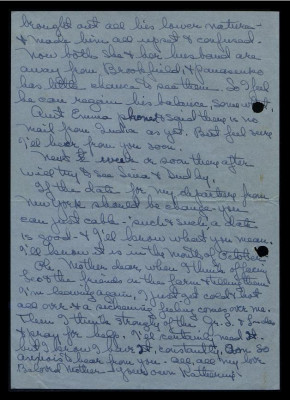 brought out all his lower nature -
& made him all upset & confused.
Now both she & her husband are
away from Brookfield, &
has little chance to see them. So I feel
he can regain his balance, somewhat.
Aunt Emma phoned & said there is no
mail from India as yet. But feel sure
I'll hear from you soon.
Next week or soon there after
will try to see Lina & Buddy.
If the date for my departure from
New York should be change - you
can just cable - "such & such a date
is good" - & I'll know what you mean.
I'll know it is in the month of October.
Oh, Mother dear, when I think of facing
brother & friends on this farm & telling them
I'm leaving again, I just get cold & hot
all over & a sickening feeling comes over me.
Then I think strongly of the Gr. &
& pray for help. I'll certainly need it.
But I know I have it, constantly. Am so
anxious to hear from you. All, all my love
Beloved Mother - your own Katherine.